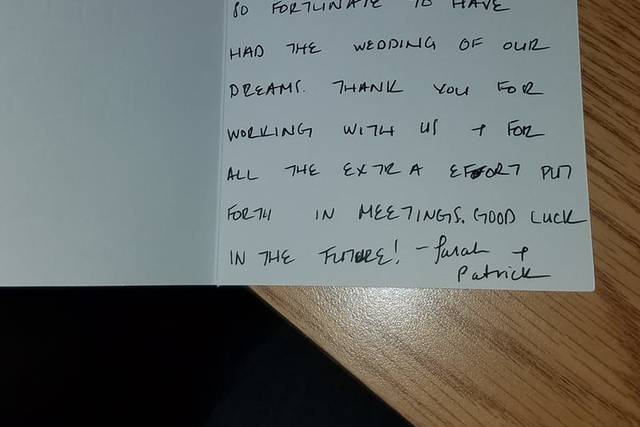 SO FORTUNATE TO HAVE
HAD THE WEDDING OF OUR
DREAMS. THANK YOU FOR
WORKING WITH US + FOR
ALL THE EXTRA EFFORT PUT
FORTH IN MEETINGS. GOOD LUCK
IN THE FUTURE! - Sarah +
Patrick